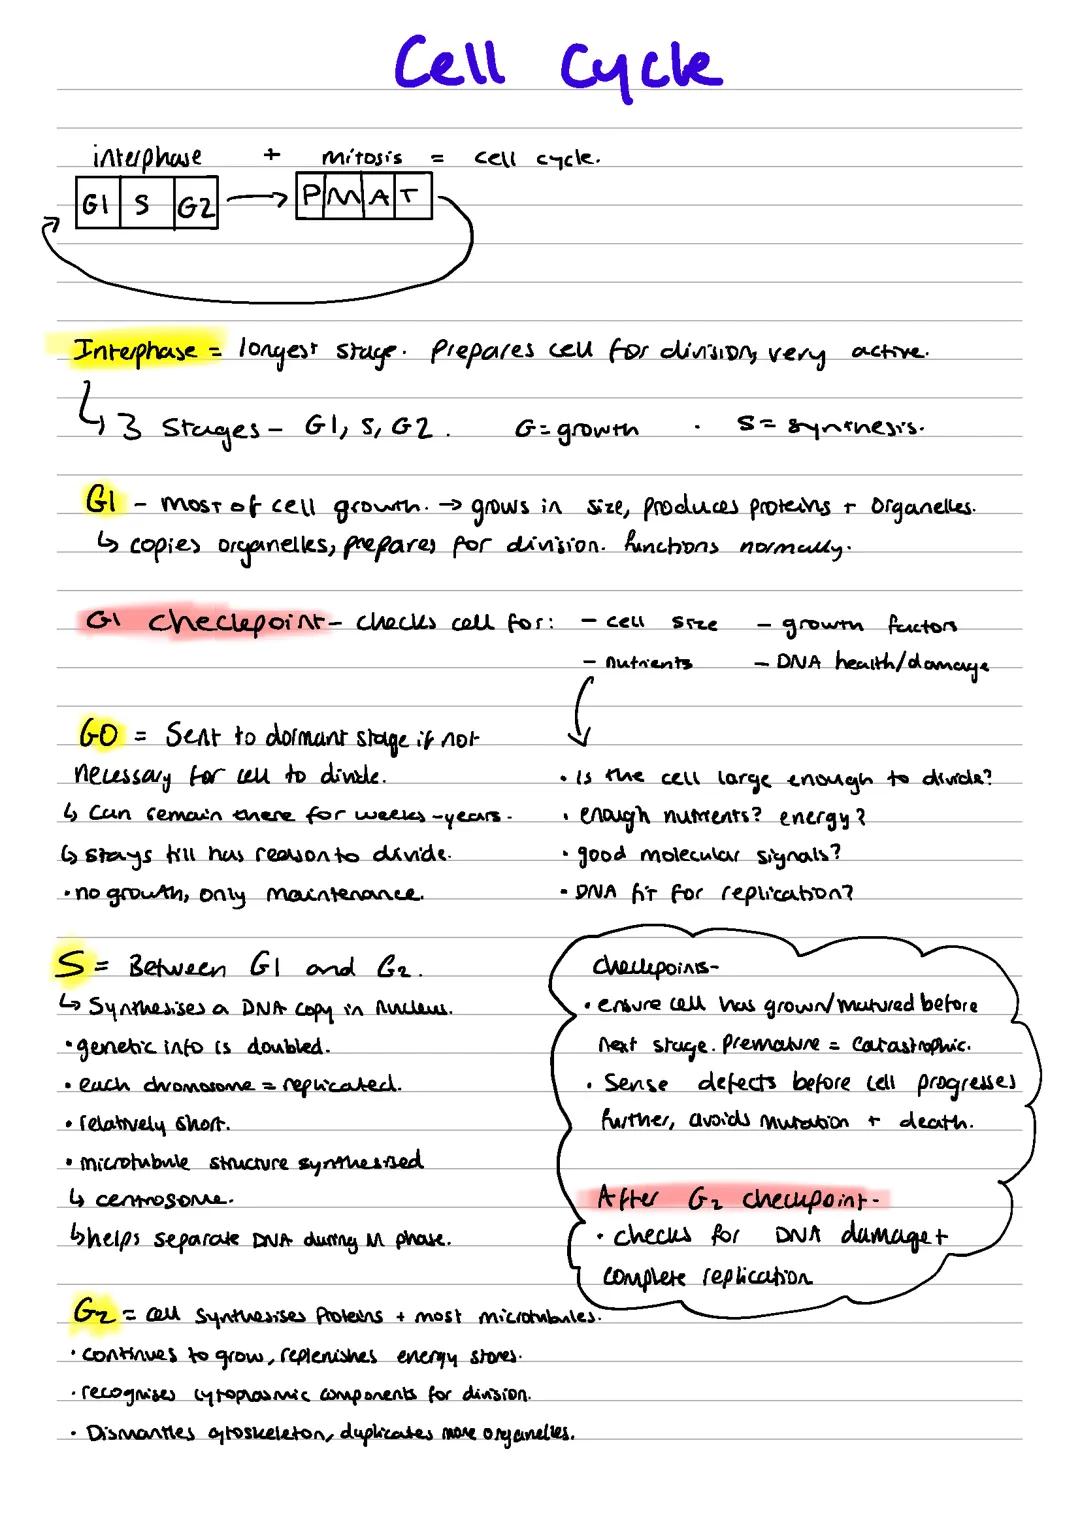 Cell Cycle
interphase + mitosis = cell cycle.
G1 S G2 → P M A T
Interphase = longest stage. Prepares cell for division, very active.
↳ 3 Stages - G1, S, G2. G = growth . S = synthesis.
G1 - most of cell growth. → grows in size, produces proteins + organelles.
↳ copies organelles, prepares for division. functions normally.
G1 checkpoint - checks cell for: - cell size - growth factors
- nutrients - DNA health/damage
G0 = Sent to dormant stage if not
necessary for cell to divide.
↳ Can remain there for weeks - years.
↳ stays till has reason to divide.
• no growth, only maintenance.
• Is the cell large enough to divide?
• enough nutrients? energy?
• good molecular signals?
• DNA fit for replication?
S = Between G1 and G2.
↳ Synthesises a DNA copy in nucleus.
• genetic info is doubled.
• each chromosome = replicated.
• relatively short.
• microtubule structure synthesised
↳ centrosome.
↳ helps separate DNA during M phase.
Checkpoints -
• ensure cell has grown/matured before
next stage. Premature = Catastrophic.
• Sense defects before cell progresses
further, avoids mutation + death.
After G2 checkpoint -
• checks for DNA damage +
complete replication
G2 = cell synthesises Proteins + most microtubules.
• continues to grow, replenishes energy stores.
• recognises cytoplasmic components for division.
• Dismantles cytoskeleton, duplicates more organelles.